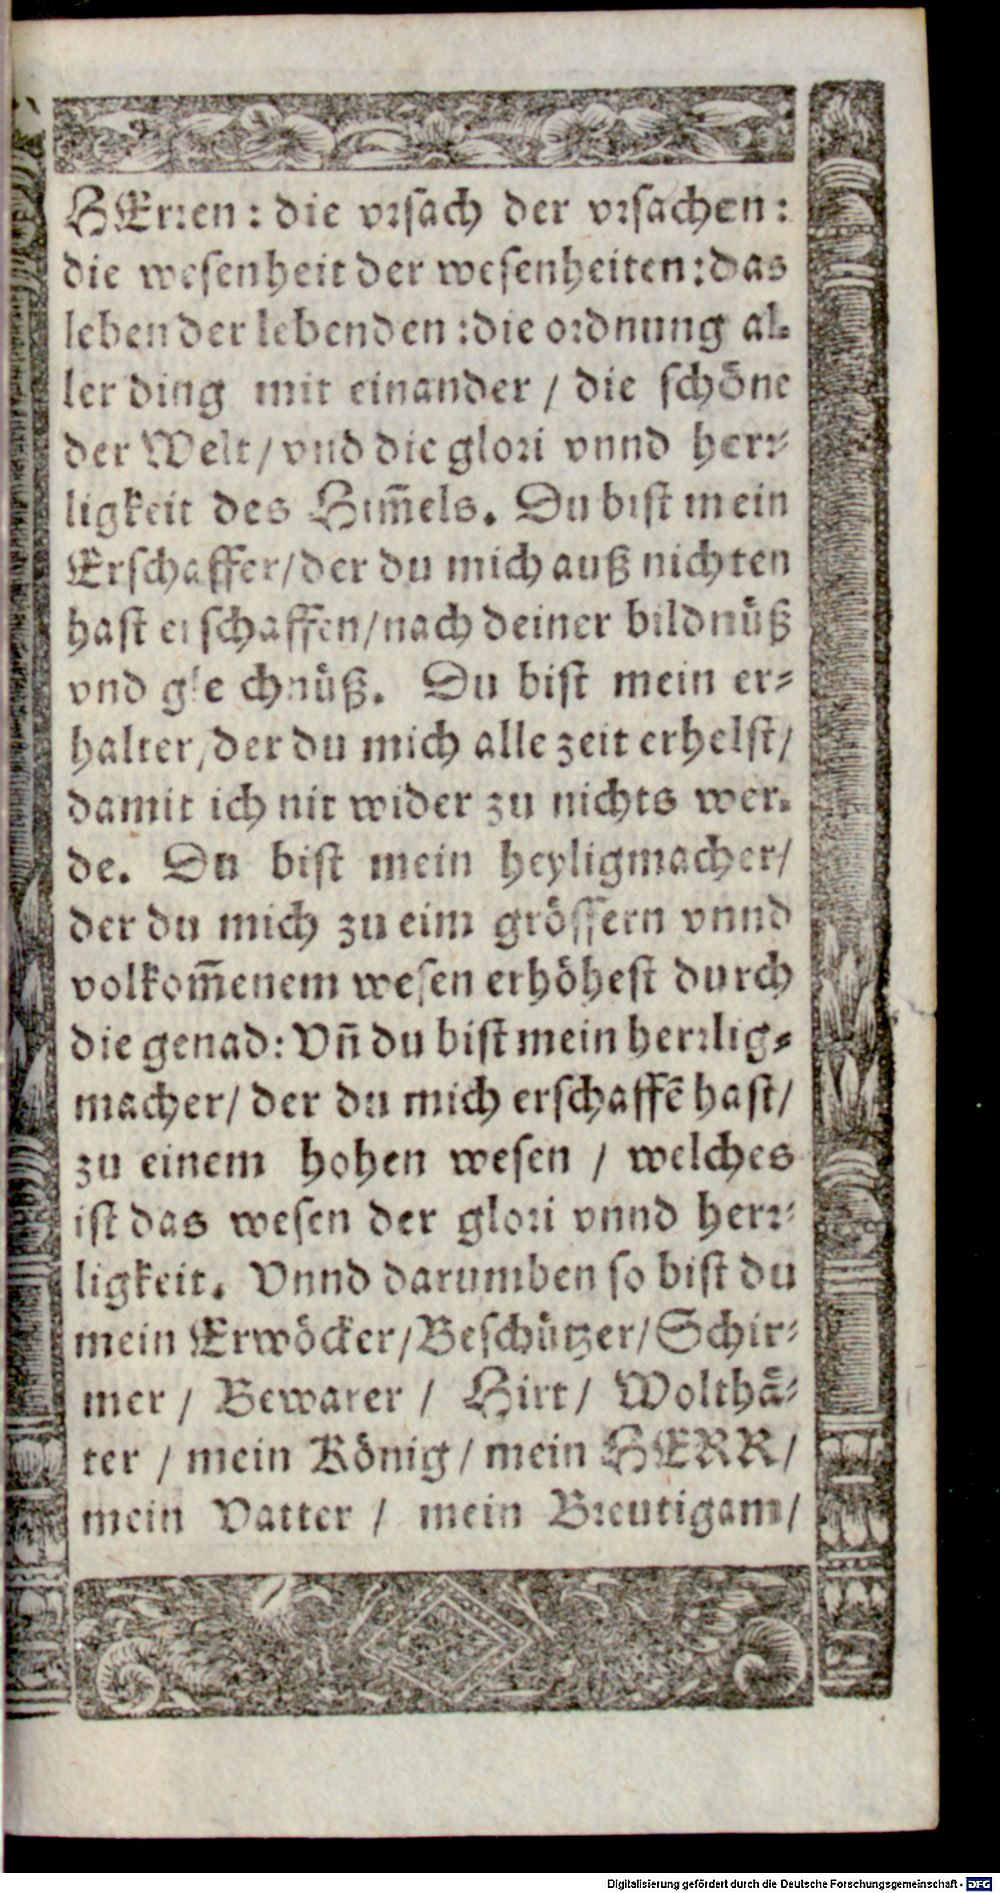 HErren: die vrsach der vrsachen:
die wesenheit der wesenheiten: das
leben der lebenden: die ordnung al-
ler ding mit einander / die schöne
der Welt / vnd die glori vnnd herr-
ligkeit des Him̃els. Du bist mein
Erschaffer / der du mich auß nichten
hast erschaffen / nach deiner bildnůß
vnd gleichnůß. Du bist mein er-
halter / der du mich alle zeit erhelst /
damit ich nit wider zu nichts wer-
de. Du bist mein heyligmacher /
der du mich zu eim grössern vnnd
volkom̃enem wesen erhöhest durch
die genad: Vñ du bist mein herrlig-
macher / der du mich erschaffẽ hast /
zu einem hohen wesen / welches
ist das wesen der glori vnnd herr-
ligkeit. Vnnd darumben so bist du
mein Erwöcker / Beschützer / Schir-
mer / Bewarer / Hirt / Wolthä-
ter / mein König / mein HERR /
mein Vatter / mein Breutigam /
Digitalisierung gefördert durch die Deutsche Forschungsgemeinschaft - DFG